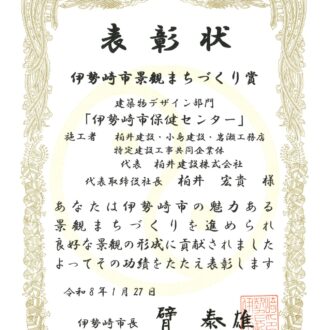 表彰状
伊勢崎市景観まちづくり賞
建築物デザイン部門
「伊勢崎市保健センター」
施工者 柏井建設・小島建設・岩瀬工務店
特定建設工事共同企業体
代表 柏井建設株式会社
代表取締役社長 柏井 宏貴 様
あなたは伊勢崎市の魅力ある
景観まちづくりを進められ
良好な景観の形成に貢献されました
よってその功績をたたえ表彰します
令和8年1月27日
伊勢崎市長 臂 泰雄